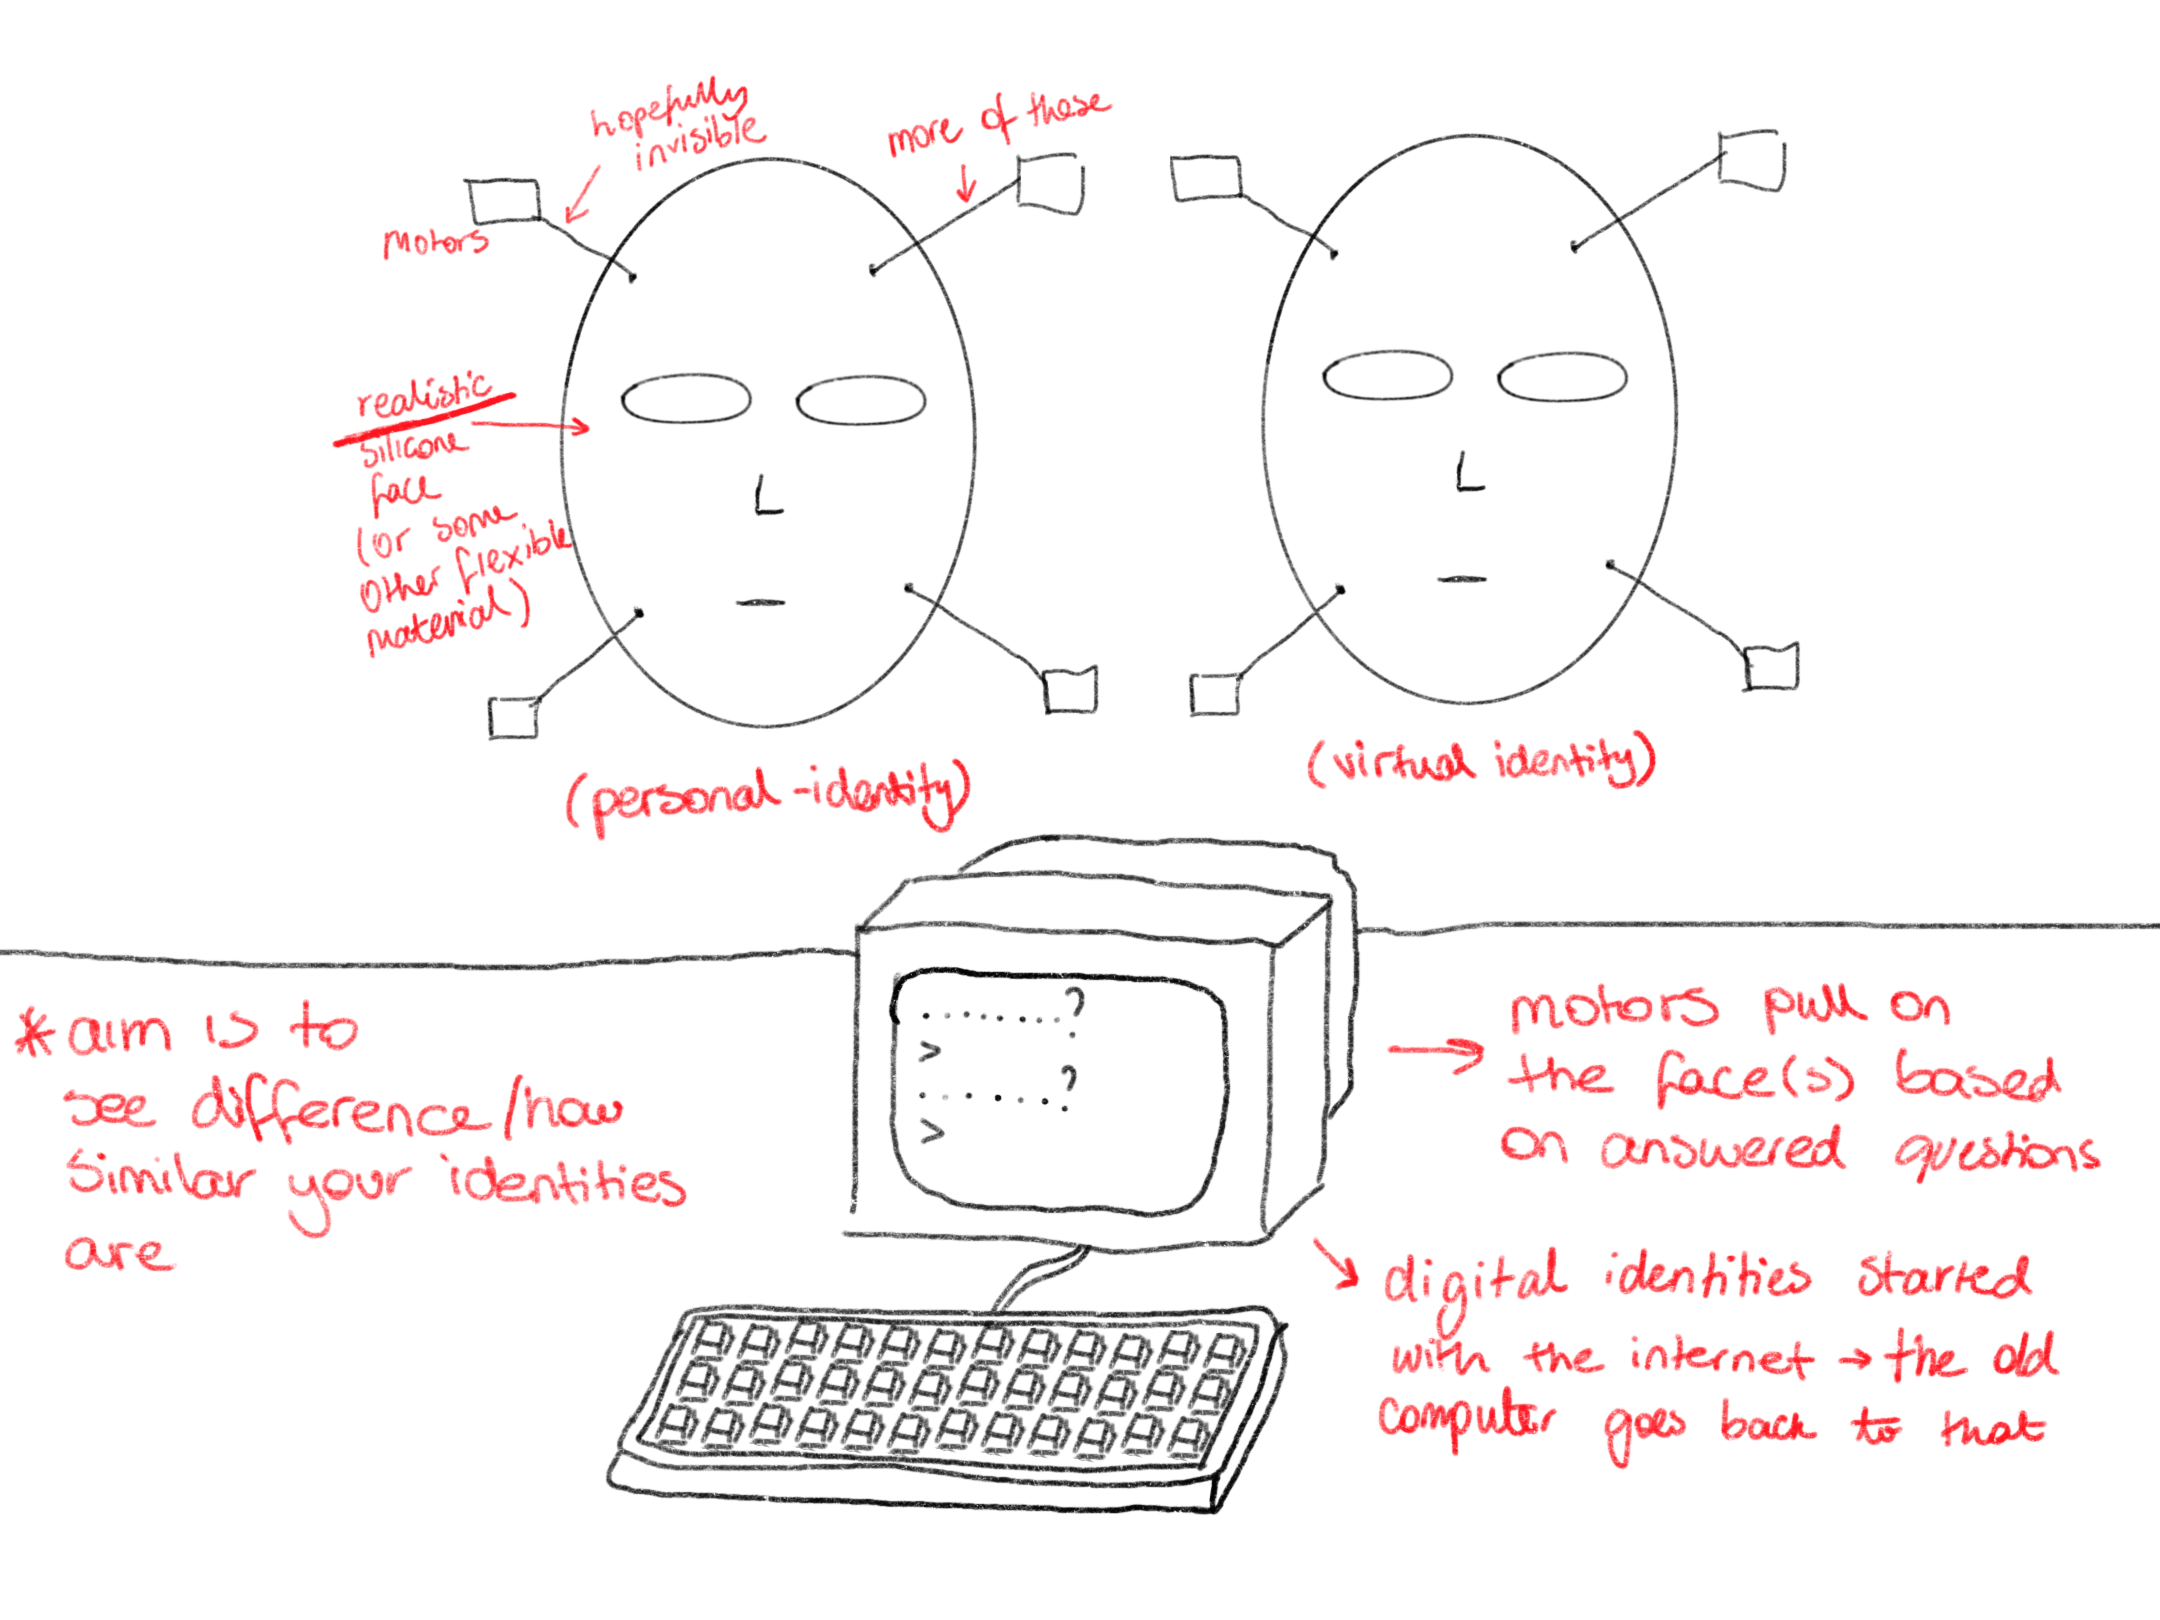 hopefully
invisible
more of these
Motors
realistic
silicone
face
(or some
other flexible
material)
(personal-identity)
(virtual identity)
.......?
>
.......?
>
* aim is to
see difference/how
similar your identities
are
→ motors pull on
the face(s) based
on answered questions
↘ digital identities started
with the internet → the old
computer goes back to that